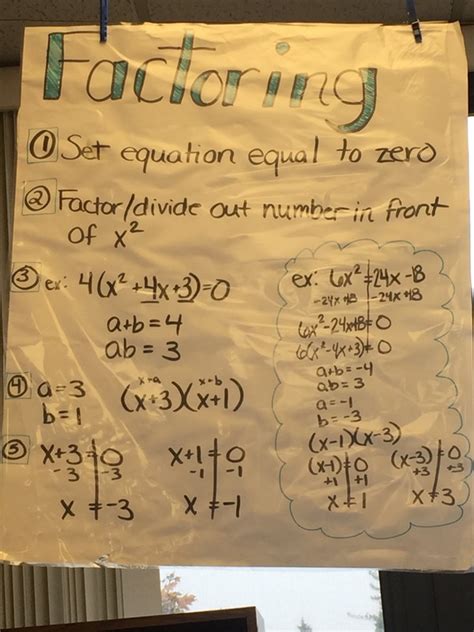 Factoring
① Set equation equal to zero
② Factor/divide out number in front
of x²
③ ex: 4(x² + 4x + 3) = 0
a+b = 4
ab = 3
④ a = 3
b = 1
x+a x+b
(x+3)(x+1)
⑤ x+3 = 0
-3 -3
x = -3
x+1 = 0
-1 -1
x = -1
ex: 6x² = 24x - 18
-24x +18 -24x +18
6x² - 24x + 18 = 0
6(x² - 4x + 3) = 0
a+b = -4
ab = 3
a = -1
b = -3
(x-1)(x-3)
(x-1) = 0
+1 +1
x = 1
(x-3) = 0
+3 +3
x = 3